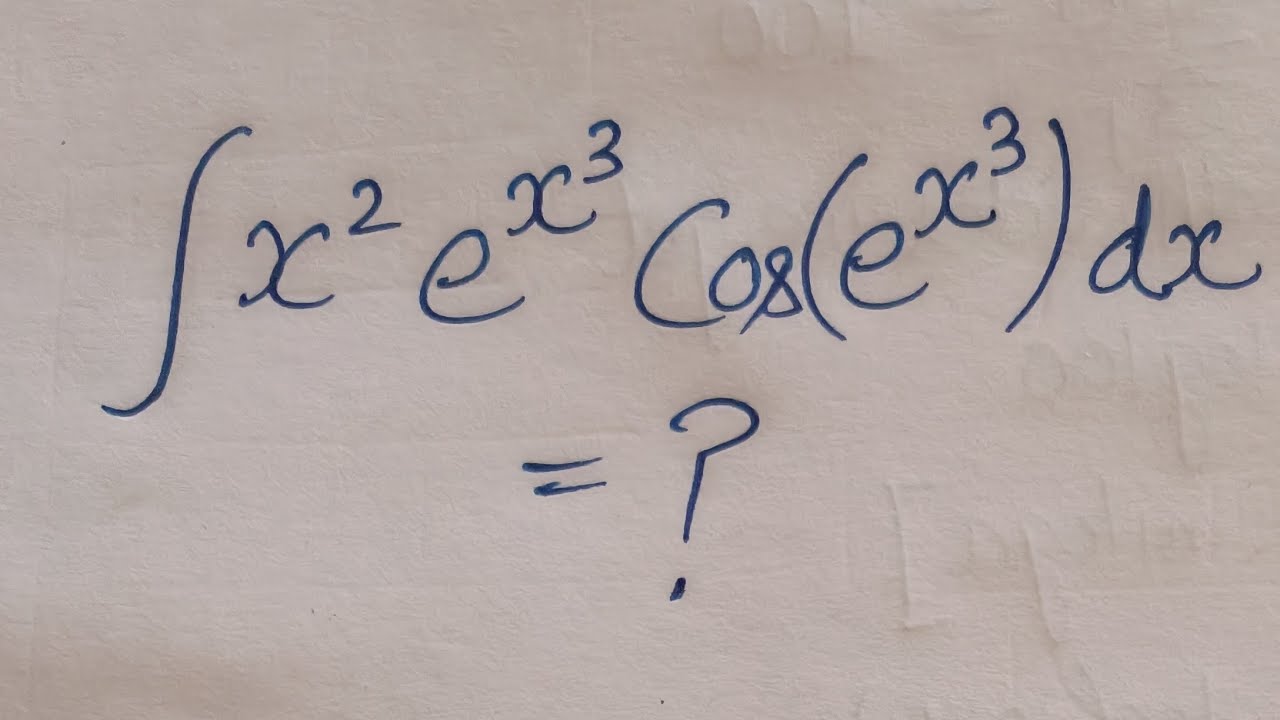 ∫ x² e^{x³} Cos(e^{x³}) dx
= ?